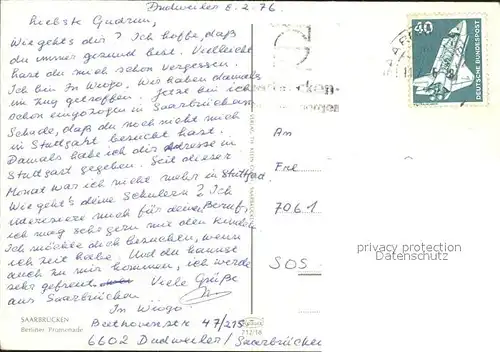 Dudweiler 8.2.76.
Liebste Gudrun,
Wie geht's dir? Ich hoffe, daß
du immer gesund bist. Vielleicht
hast du mich schon vergessen.
Ich bin In Wiogo. Wir haben damals
im Zug getroffen. Jetzt bin ich
schon eingezogen in Saarbrücken
Schade, daß du noch nicht mich
in Stuttgart besucht hast.
Damals habe ich dir Adresse in
Stuttgart gegeben. Seit dieser
Monat war ich nicht mehr in Stuttgart.
Wie geht's deine Schulern? Ich
interesiere mich für deinen Beruf,
ich mag sehr gern mit den Kindern.
Ich möchte dich besuchen, wenn
ich Zeit habe. Und du kannst
auch zu mir kommen, ich werde
sehr gefreut. Viele Grüße
aus Saarbrücken
In Wiogo
Beethovenstr 47/215
6602 Dudweiler/Saarbrücken
SAARBRÜCKEN
Berliner Promenade
712/16
40
DEUTSCHE BUNDESPOST
An
Fre
7061
SOS
privacy protection
Datenschutz